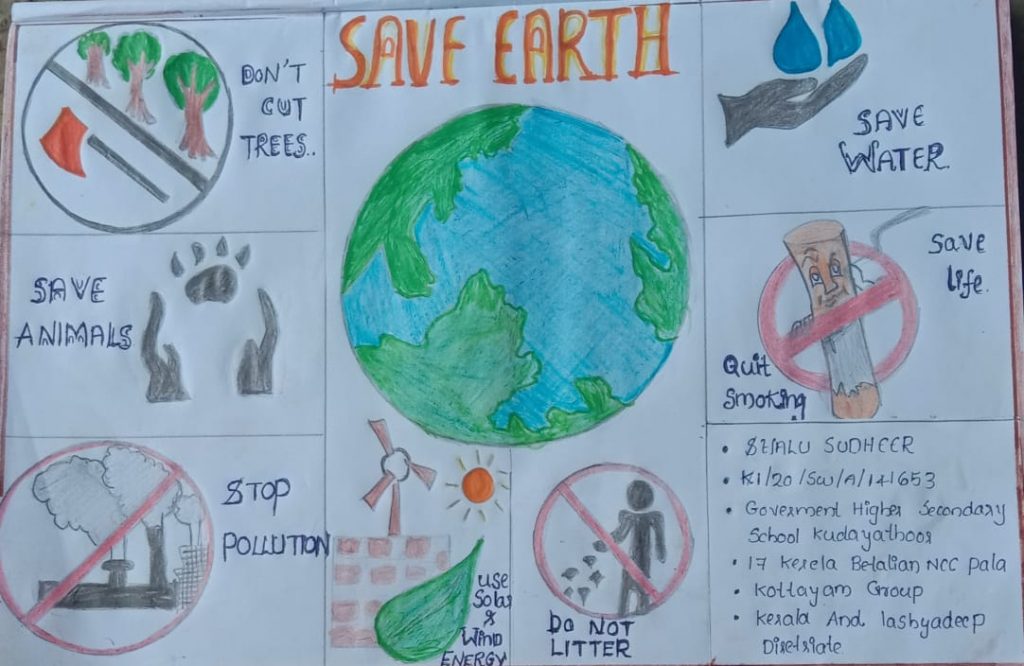 SAVE EARTH
DON'T
CUT
TREES..
SAVE
WATER.
SAVE
ANIMALS
Save
Life.
Quit
Smoking
STOP
POLLUTION
USE
Solar
&
WIND
ENERGY
DO NOT
LITTER
• SHALU SUDHEER
• K1/20/SW/A/141653
• Goverment Higher Secondary
School Kudayathoor
• 17 Kerela Betalian NCC Pala
• Kottayam Group
• Kerala And lashyadeep